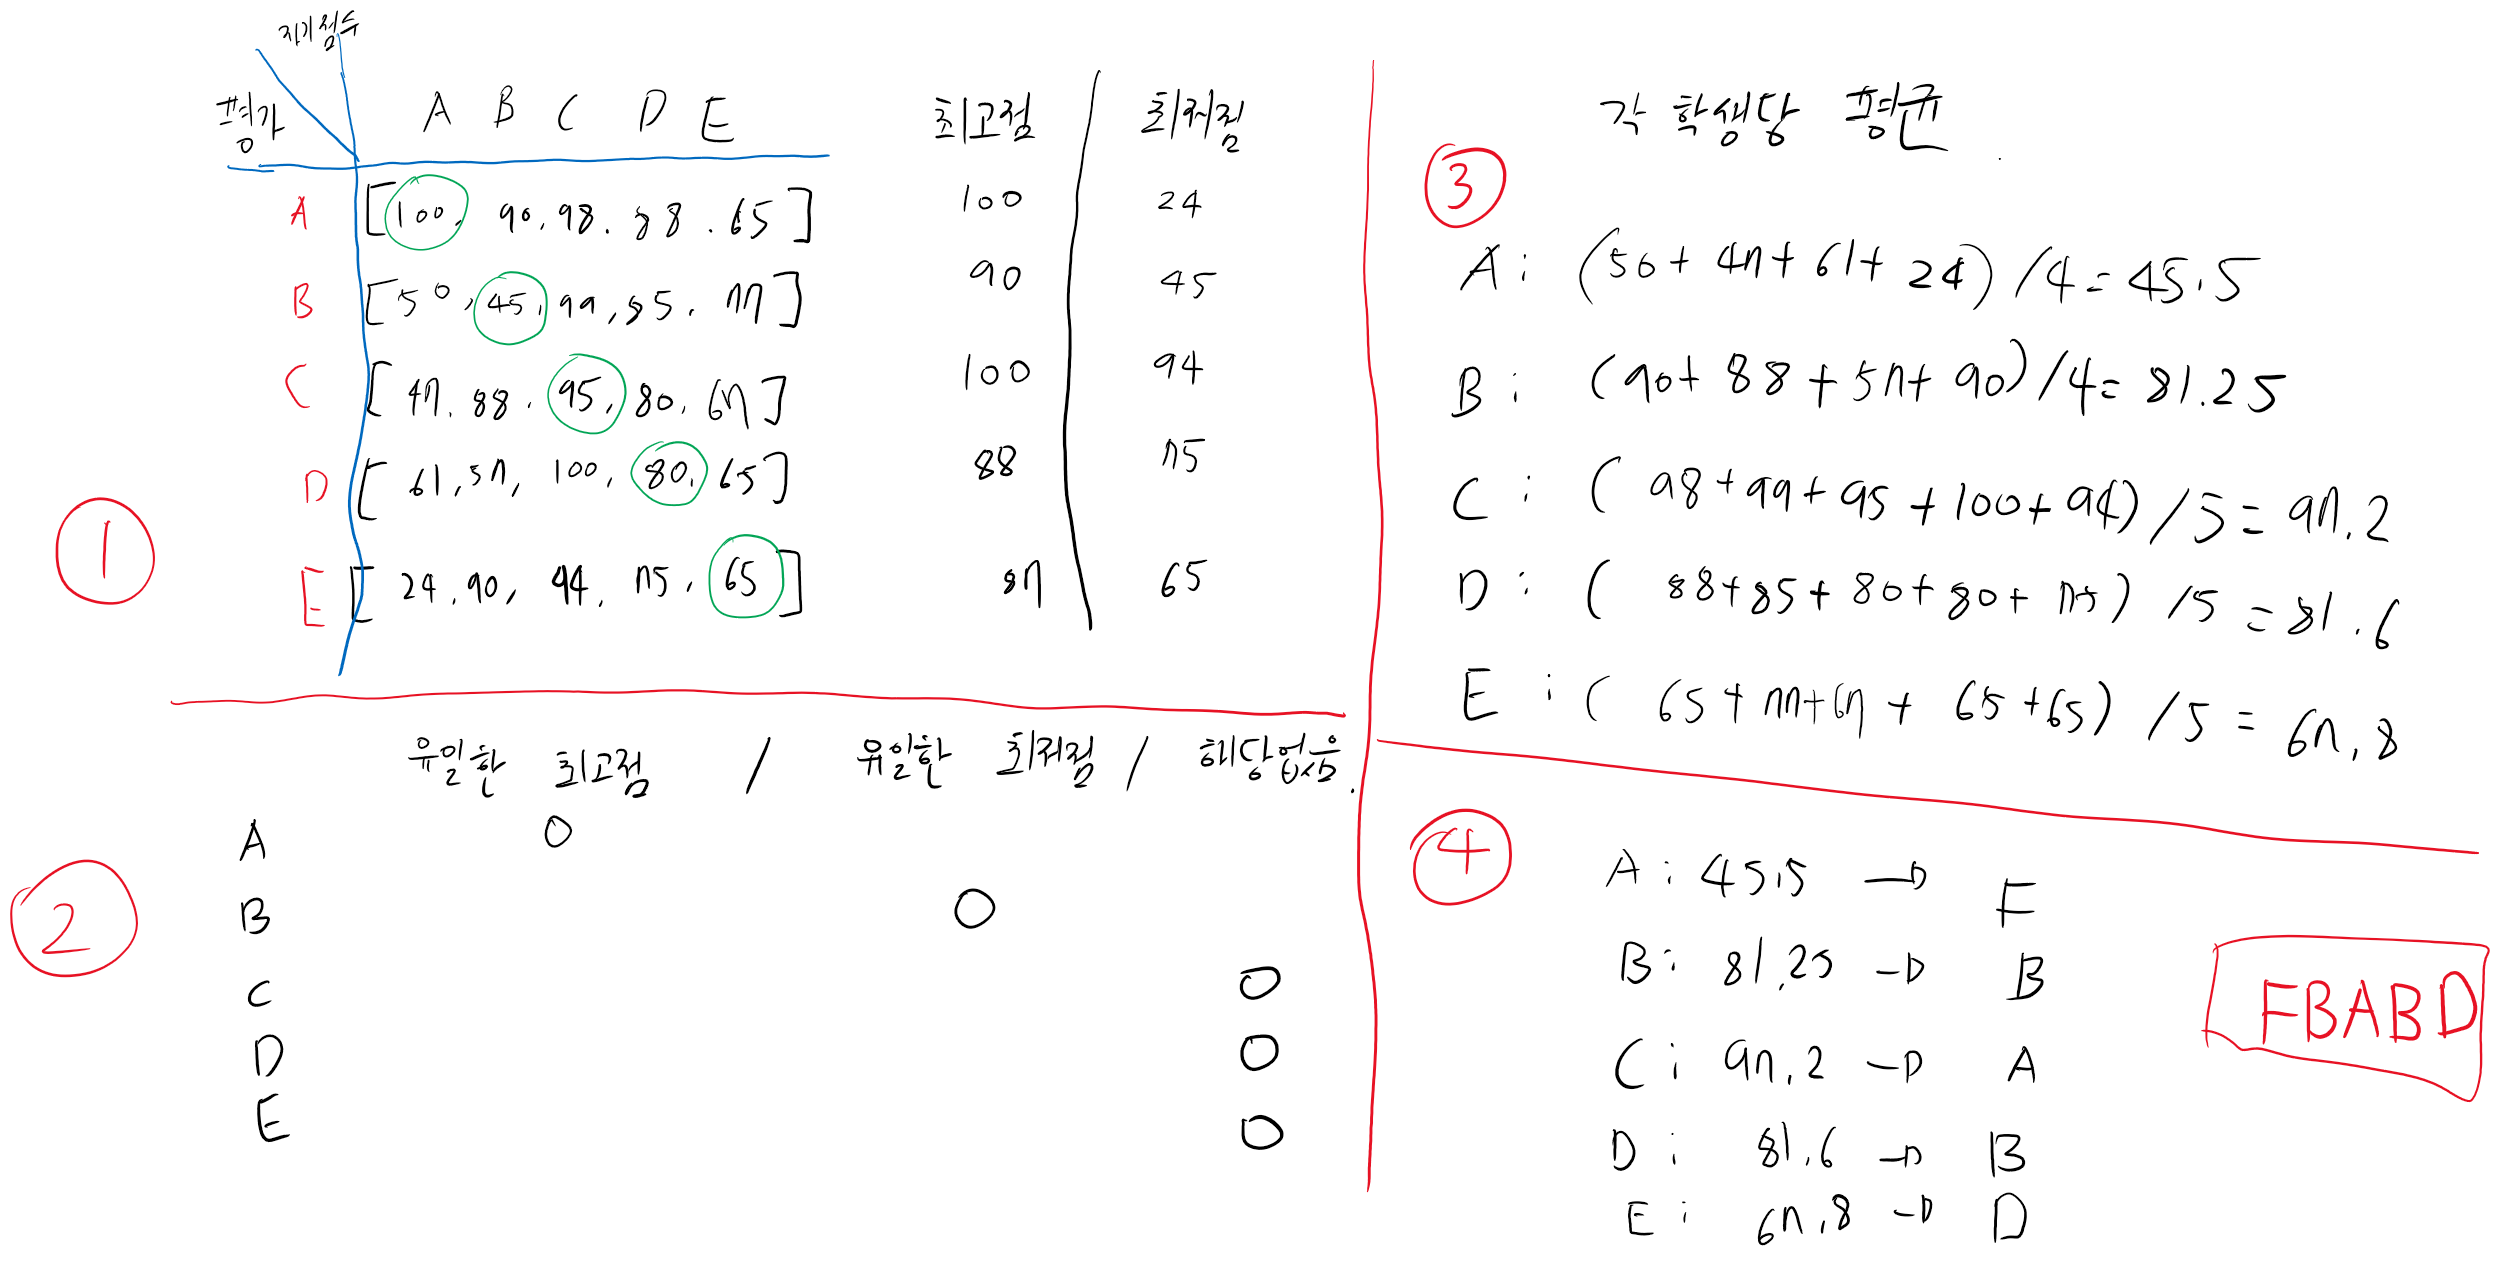 점수
평가 A B C D E 최고점 최저점
A [100, 90, 98, 88, 65] 100 24
B [50, 45, 99, 85, 77] 90 45
C [47, 88, 95, 80, 67] 100 94
D [61, 57, 100, 80, 65] 88 75
E [24, 90, 94, 75, 65] 87 65
①
유일한 최고점 / 유일한 최저점 / 해당없음.
A O
B O
C O
D O
E O
②
각 학생당 평균.
③
A : (50 + 47 + 61 + 24) / 4 = 45.5
B : (90 + 88 + 57 + 90) / 4 = 81.25
C : (98 + 99 + 95 + 100 + 94) / 5 = 97.2
D : (88 + 85 + 80 + 80 + 75) / 5 = 81.6
E : (65 + 77 + 67 + 65 + 65) / 5 = 67.8
④
A : 45.5 → F
B : 81.25 → B
C : 97.2 → A
D : 81.6 → B
E : 67.8 → D
FBABD